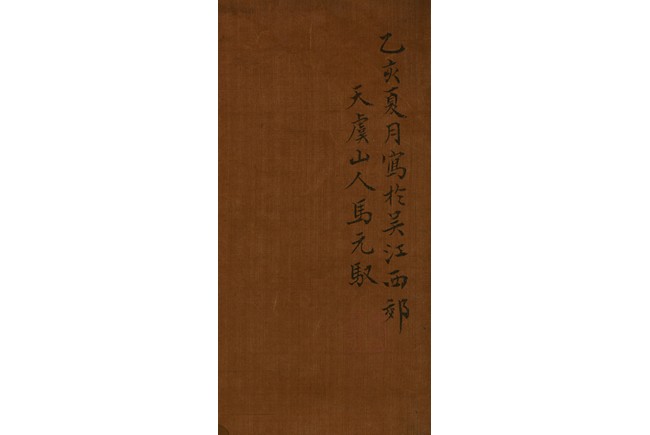 乙亥夏月寫於吴江西郊
天虞山人馬元馭